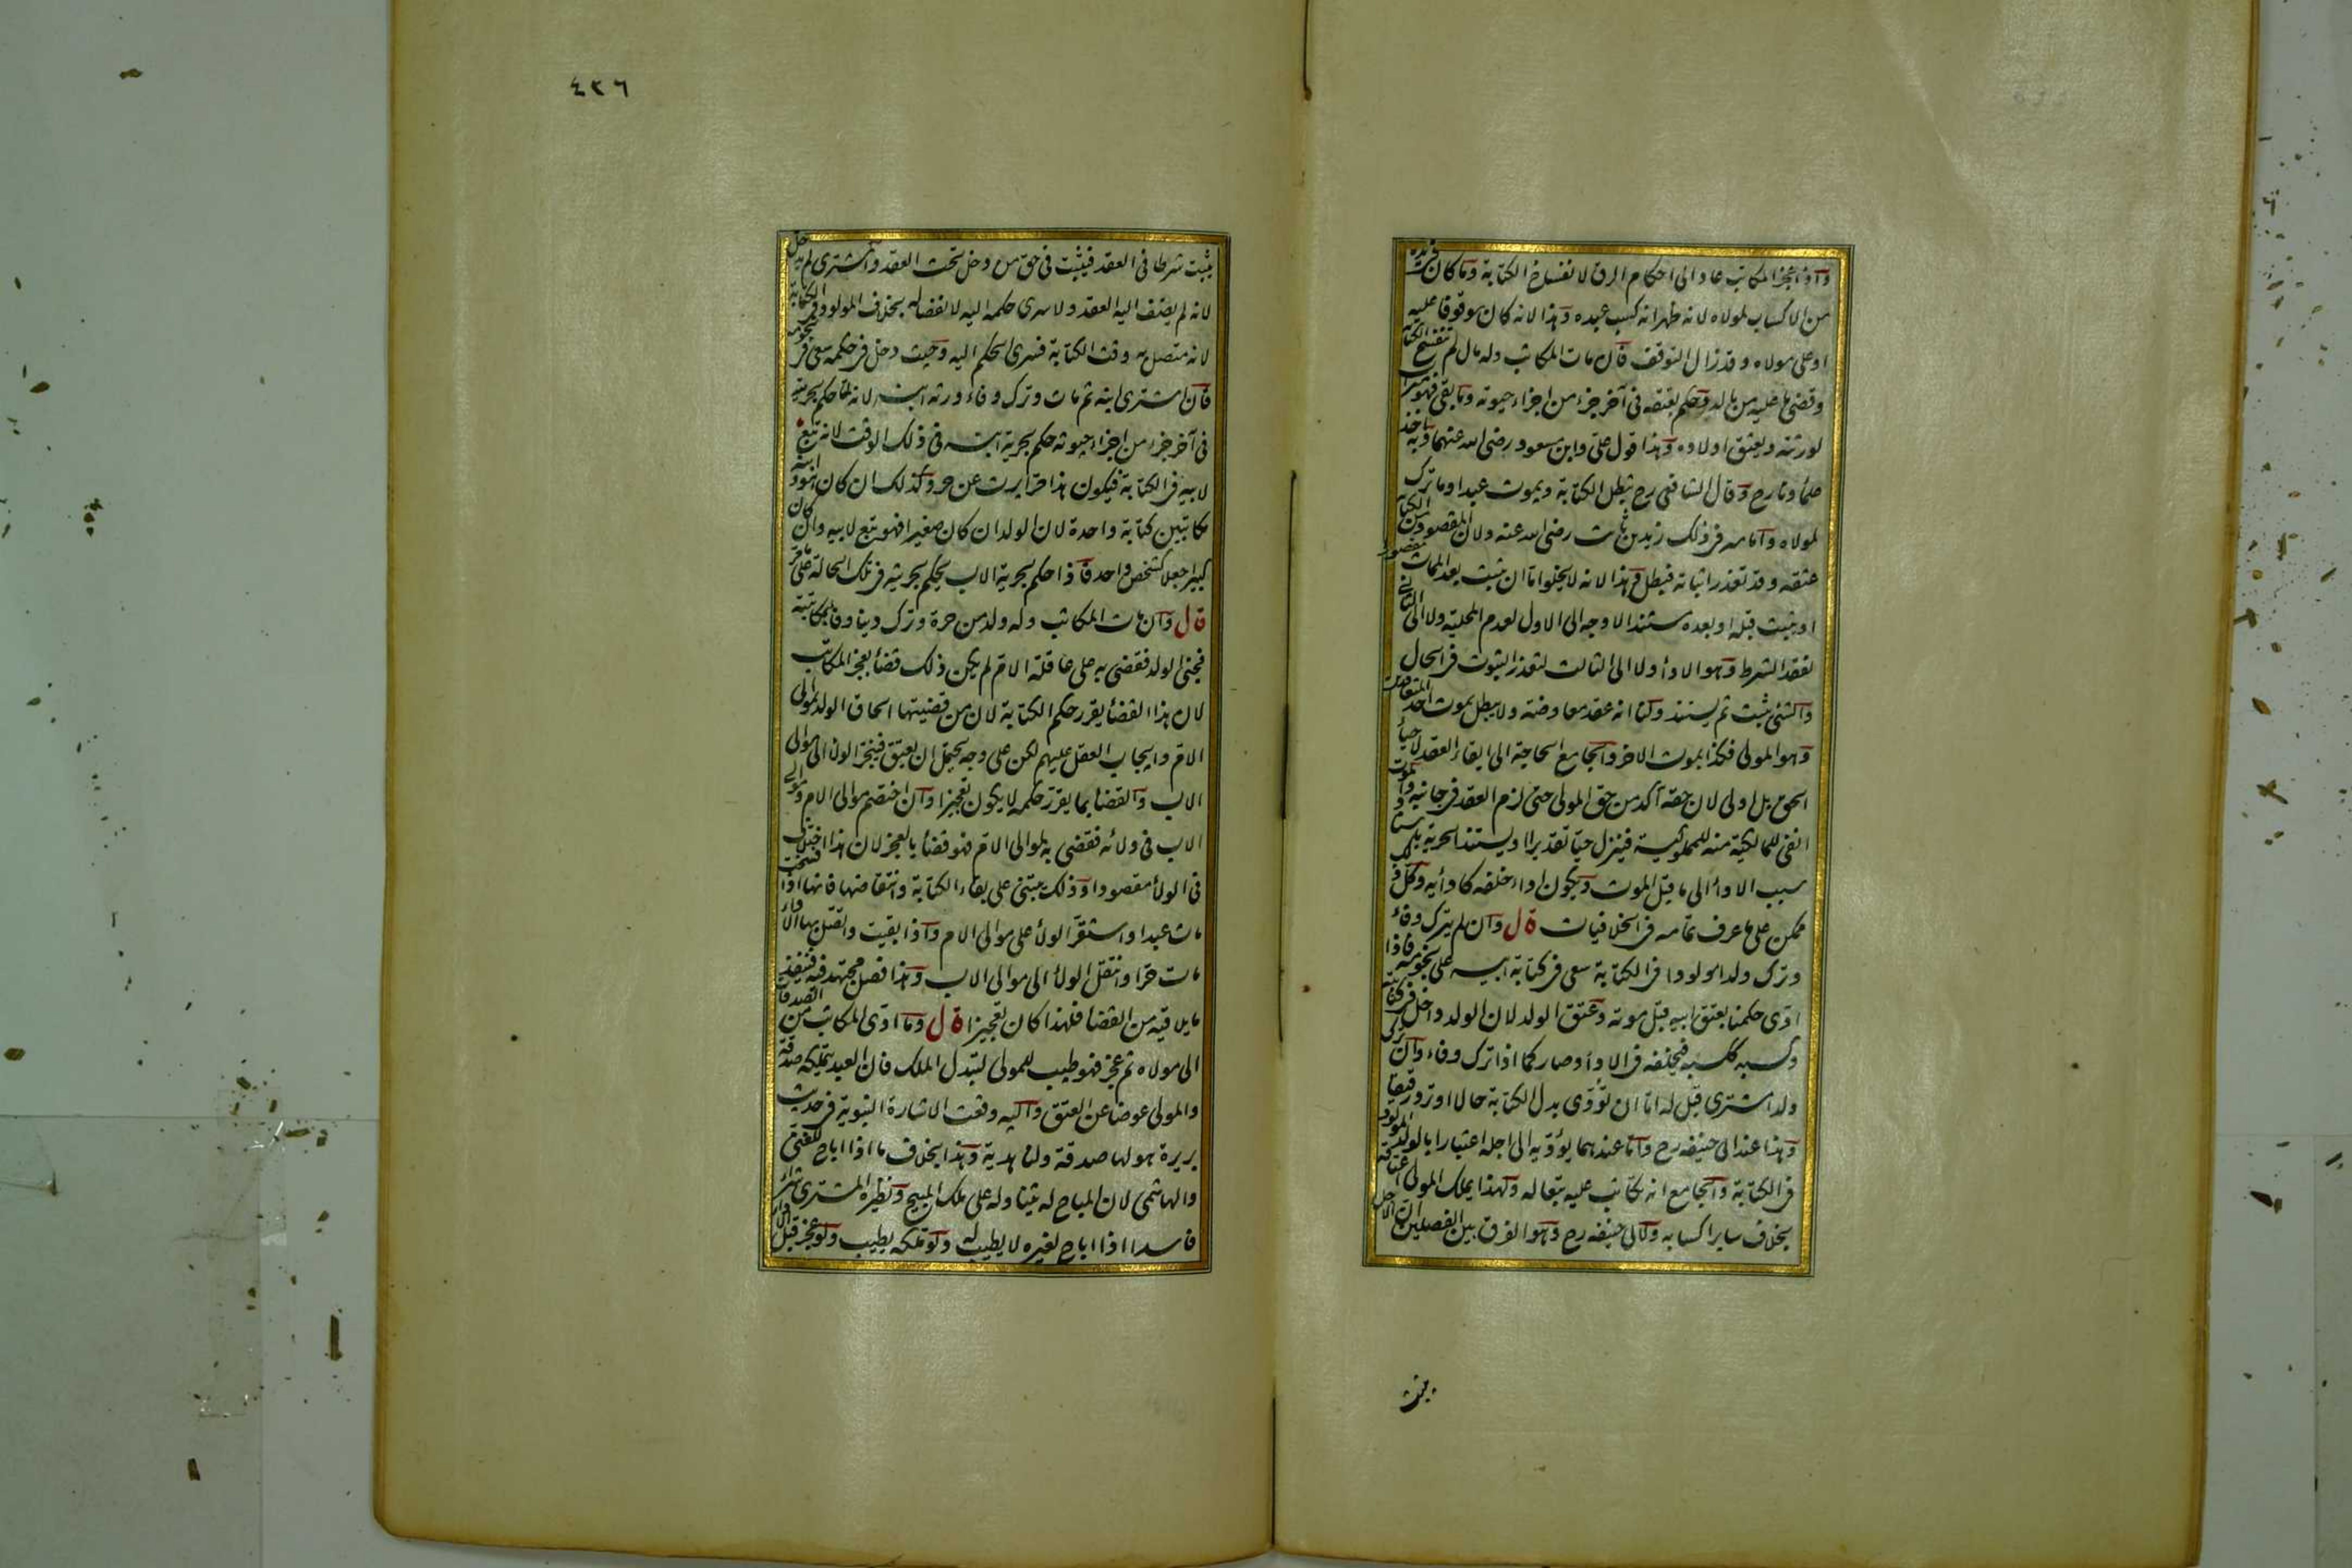 واذا عجز المكاتب عاد الى احكام الرق لانفساخ الكتابة وما كان فى يده
من الاكساب لمولاه لانه ظهر انه كسب عبده وهذا لانه كان موقوفا عليه
او على مولاه وقد زال التوقف فان مات المكاتب وله مال لم تنفسخ الكتابة
وقضى ما عليه من ماله وحكم بعتقه فى آخر جزء من اجزاء حيوته وما بقى فهو ميراث
لورثته ويعتق اولاده وهذا قول على وابن مسعود رضى الله عنهما وبه اخذ
علماؤنا رح وقال الشافعى رح تبطل الكتابة ويموت عبدا وما ترك
لمولاه وامامه فى ذلك زيد بن ثابت رضى الله عنه ولان المقصود من الكتابة
عتقه وقد تعذر اثباته فيبطل وهذا لانه لا يخلوا اما ان يثبت بعد الممات مقصورا
او يثبت قبله او بعده مستندا لا وجه الى الاول لعدم المحلية ولا الى الثانى
لفقد الشرط وهو الاداء ولا الى الثالث لتعذر الثبوت فى الحال
والشئ يثبت ثم يستند ولنا انه عقد معاوضة ولا يبطل بموت احد المتعاقدين
وهو المولى فكذا بموت الاخر والجامع الحاجة الى ابقاء العقد لاحياء
الحق بل اولى لان حقه آكد من حق المولى حتى لزم العقد فى جانبه والموت
انفى للمالكية منه للمملوكية فينزل حيا تقديرا او يستند الحرية باستناد
سبب الاداء الى ما قبل الموت ويكون اداء خلفه كادائه وكل ذلك
ممكن على ما عرف تمامه فى الخلافيات قال وان لم يترك وفاء
وترك ولدا مولودا فى الكتابة سعى فى كتابة ابيه على نجومه فاذا
ادى حكمنا بعتق ابيه قبل موته وعتق الولد لان الولد داخل فى كتابته
وكسبه ككسبه فيخلفه فى الاداء وصار كما اذا ترك وفاء وان ترك
ولدا مشترى قيل له اما ان تؤدى بدل الكتابة حالا او ترد رقيقا
وهذا عند ابى حنيفه رح واما عندهما يؤديه الى اجله اعتبارا بالولد المولود
فى الكتابة والجامع انه تكاتب عليه تبعا له ولهذا يملك المولى اعتاقه
بخلاف ساير اكسابه ولابى حنيفه رح وهو الفرق بين الفصلين ان الاجل
يثبت
٤٣٦
يثبت شرطا فى العقد فيثبت فى حق من دخل تحت العقد والمشترى لم يدخل
لانه لم يضف اليه العقد ولا يسرى حكمه اليه لانفصاله بخلاف المولود فى الكتابة
لانه متصل به وقت الكتابة فسرى الحكم اليه وحيث دخل فى حكمه سعى فى نجومه
فان اشترى ابنه ثم مات وترك وفاء ورثه ابنه لانه لما حكم بحريته
فى آخر جزء من اجزاء حيوته حكم بحرية ابنه فى ذلك الوقت لانه تبع
لابيه فى الكتابة فيكون هذا حرا يرث عن حر وكذلك ان كان هو وابنه
مكاتبين كتابة واحدة لان الولد ان كان صغيرا فهو تبع لابيه وان كان
كبيرا جعلا كشخص واحد فاذا حكم بحرية الاب يحكم بحريته فى تلك الحالة على ما مر
قال وان مات المكاتب وله ولد من حرة وترك دينا وفاء بمكاتبته
فجنى الولد فقضى به على عاقلة الام لم يكن ذلك قضاء بعجز المكاتب
لان هذا القضاء يقرر حكم الكتابة لان من قضيتها الحاق الولد بموالى
الام وايجاب العقل عليهم لكن على وجه يحتمل ان يعتق فينجر الولاء الى موالى
الاب والقضاء بما يقرر حكمه لا يكون تعجيزا وان اختصم موالى الام وموالى
الاب فى ولائه فقضى به لموالى الام فهو قضاء بالعجز لان هذا اختلاف
فى الولاء مقصودا وذلك يبتنى على بقاء الكتابة وانتقاضها فانها اذا فسخت
مات عبدا واستقر الولاء على موالى الام واذا بقيت واتصل بها الاداء
مات حرا وانتقل الولاء الى موالى الاب وهذا فصل مجتهد فيه فينفذ
ما يلاقيه من القضاء فلهذا كان تعجيزا قال وما ادى المكاتب من الصدقات
الى مولاه ثم عجز فهو طيب للمولى لتبدل الملك فان العبد يتملكه صدقة
والمولى عوضا عن العتق واليه وقعت الاشارة النبوية فى حديث
بريرة هو لها صدقة ولنا هدية وهذا بخلاف ما اذا اباح للغنى
والهاشمى لان المباح له يتناوله على ملك المبيح ونظيره المشترى شراء
فاسدا اذا اباح لغيره لا يطيب له ولو ملكه يطيب ولو عجز قبل الاداء